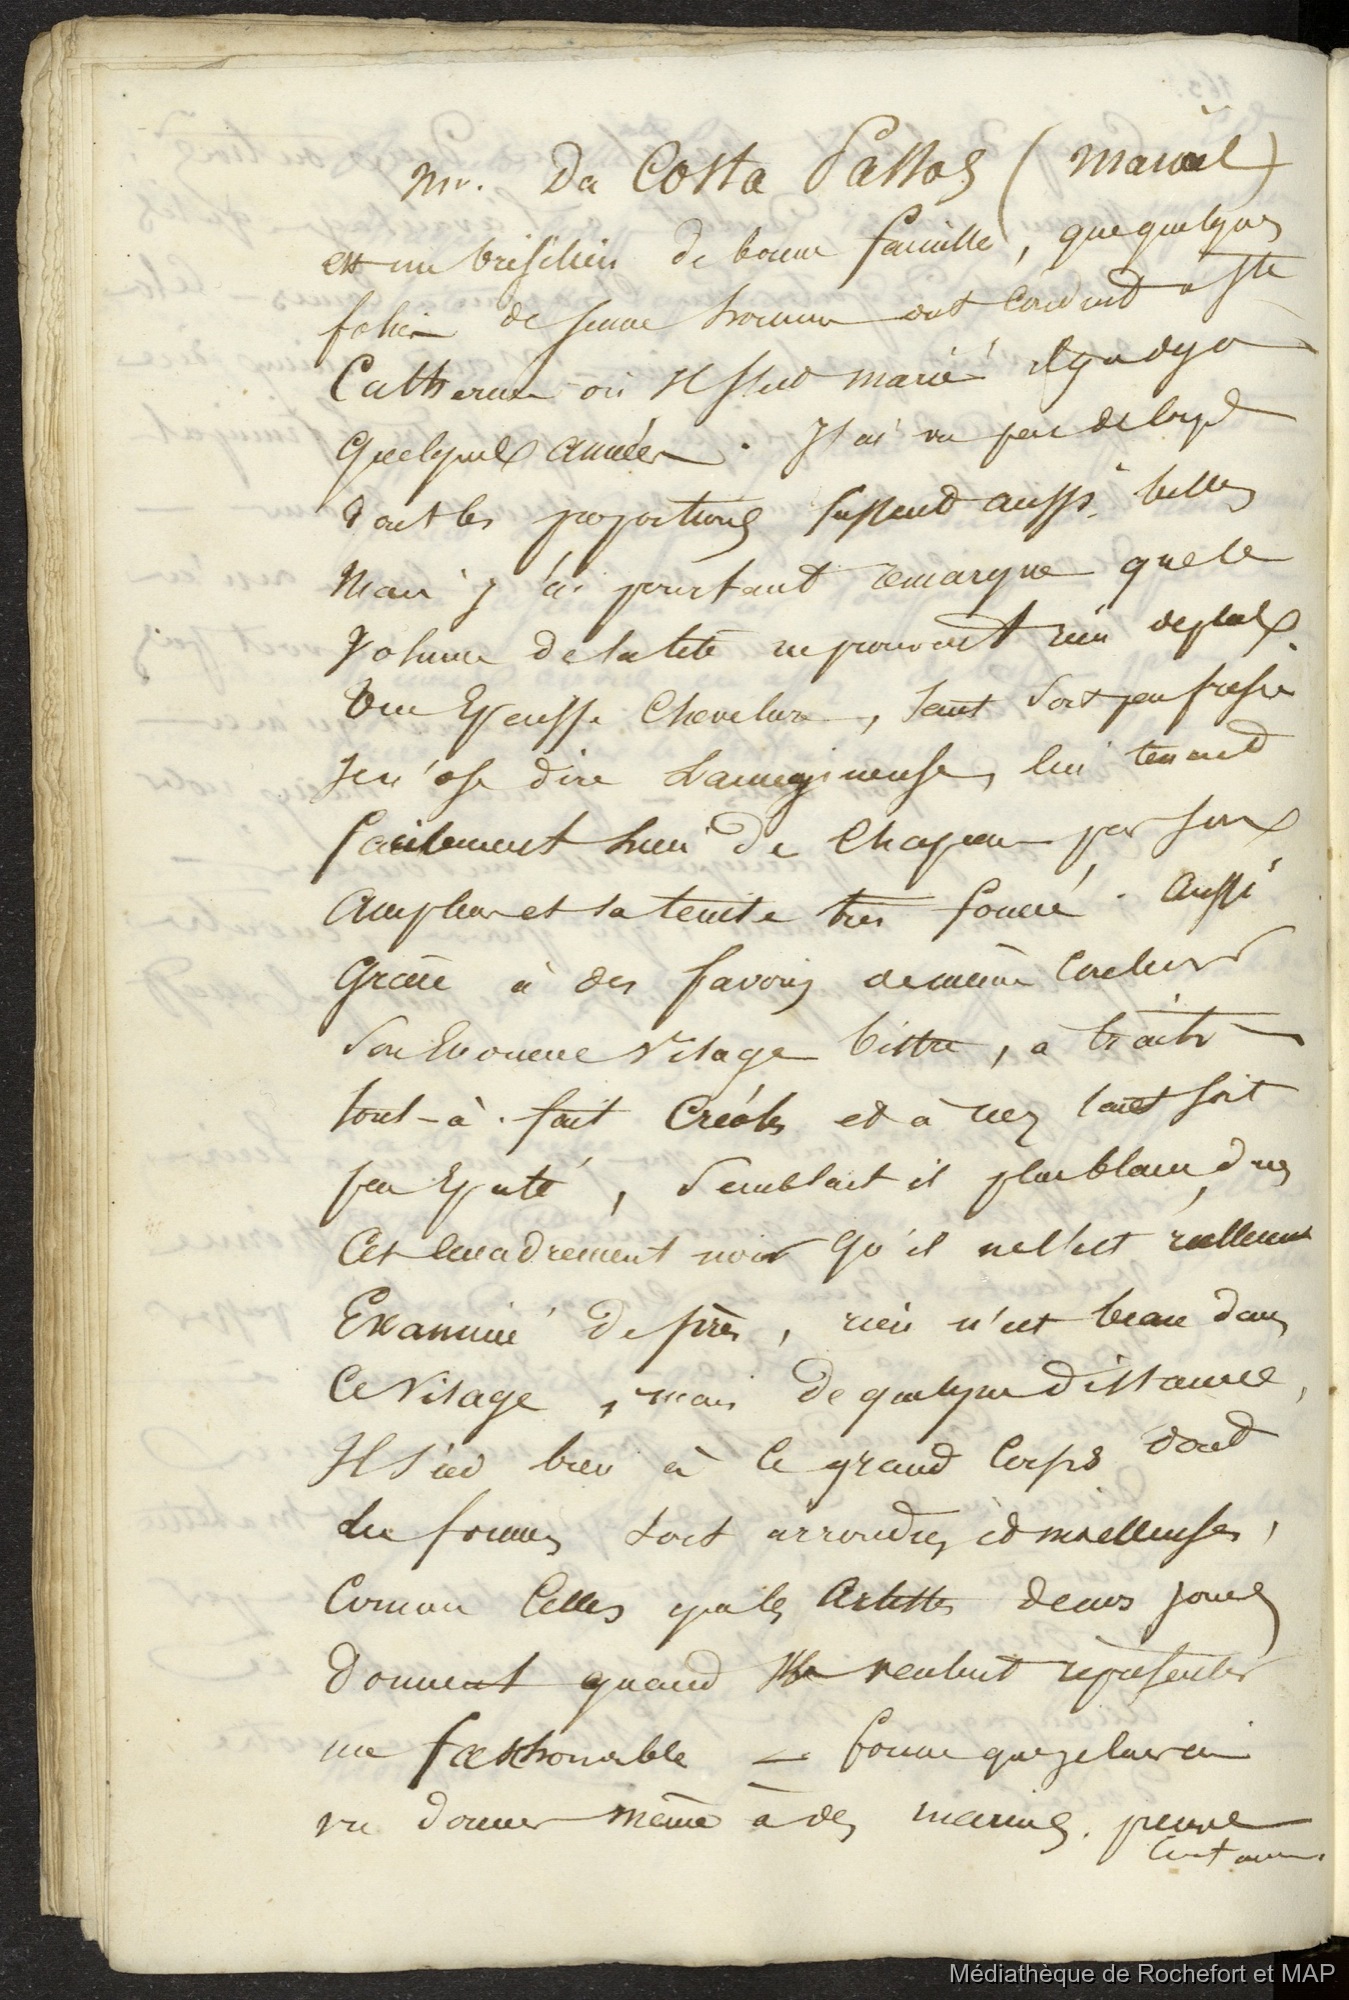 Mr. Da Costa Passos (Manoël)
est un brésilien de bonne famille, que quelques
folies de jeune homme ont conduit a Ste
Catherine où il s'est marié il y a deja
quelques années. J'ai vu peu de corps
dont les proportions fussent aussi belles
mais j'ai pourtant remarqué que le
volume de la tête ne prouvait rien de plus.
Une Epaisse Chevelure, tant soit peu frisée
je n'ose dire Lanugineuse, lui tenant
facilement lieu de Chapeau par son
Ampleur et sa teinte très foncée. Aussi
Grâce à des favoris de même Couleur
Son Enorme Visage bistre, a traits
tout-à-fait Créoles et à nez tant soit
peu Epaté, Semblait il plus blanc dans
Cet Encadrement noir qu'il ne l'est réellement
Examiné de près, rien n'est beau dans
Ce Visage, mais de quelque distance,
Il sied bien à Ce grand Corps dont
les formes sont arrondies et moelleuses,
Comme Celles que les Artistes de nos jours
Donnent quand Ils veulent représenter
un fashionable = forme que je leur ai
vu donner même à des marins. preuve
Certaine.
Médiathèque de Rochefort et MAP